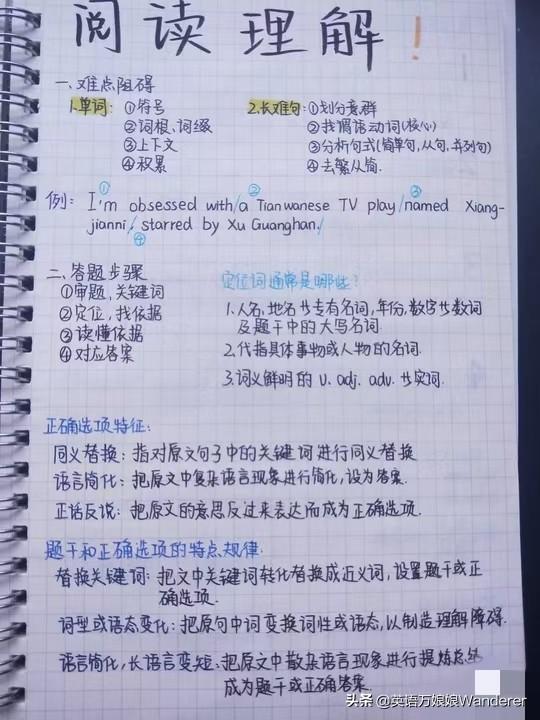 阅读理解!
一、难点阻碍
1.单词: ①符号
②词根、词缀
③上下文
④积累
2.长难句: ①划分意群
②找谓语动词(核心)
③分析句式(简单句,从句,并列句)
④去繁从简.
例: I'm obsessed with/a Tianwanese TV play/named Xiang-
① ② ③
jianni/, starred by Xu Guanghan./
④
二、答题步骤
①审题,关键词
②定位,找依据
③读懂依据
④对应答案
定位词通常是哪些?
1.人名,地名等专有名词,年份,数字等数词
及题干中的大写名词.
2.代指具体事物或人物的名词.
3.词义鲜明的 v. adj. adv. 等实词.
正确选项特征:
同义替换: 指对原文句子中的关键词进行同义替换
语言简化: 把原文中复杂语言现象进行简化,设为答案.
正话反说: 把原文的意思反过来表达而成为正确选项.
题干和正确选项的特点规律.
替换关键词: 把文中关键词转化替换成近义词,设置题干或正
确选项.
词型或语态变化: 把原句中词变换词性或语态,以制造理解障碍.
语言简化,长语言变短、把原文中散杂语言现象进行提炼总结
成为题干或正确答案.
头条 @英语万娘娘Wanderer